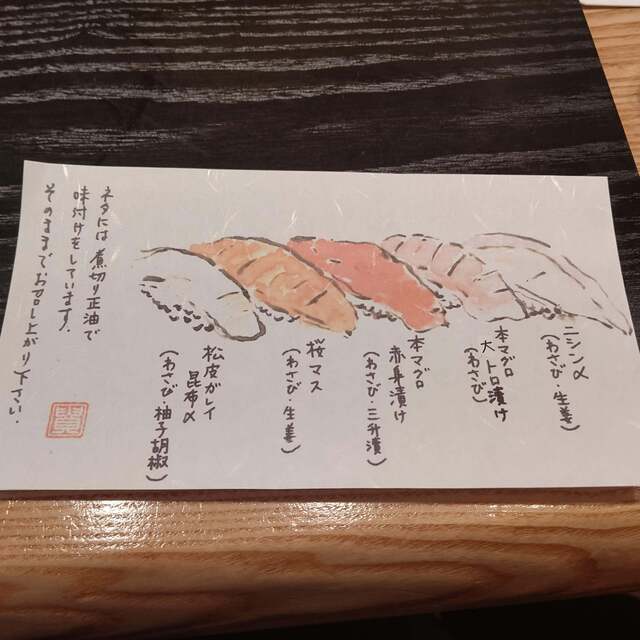 ニシン〆
(わさび・生姜)
本マグロ
大トロ漬け
(わさび)
本マグロ
赤身漬け
(わさび・三升漬)
桜マス
(わさび・生姜)
松皮ガレイ
昆布〆
(わさび 柚子胡椒)
ネタには煮切り正油で
味付けをしています。
そのままでお召し上がり下さい。